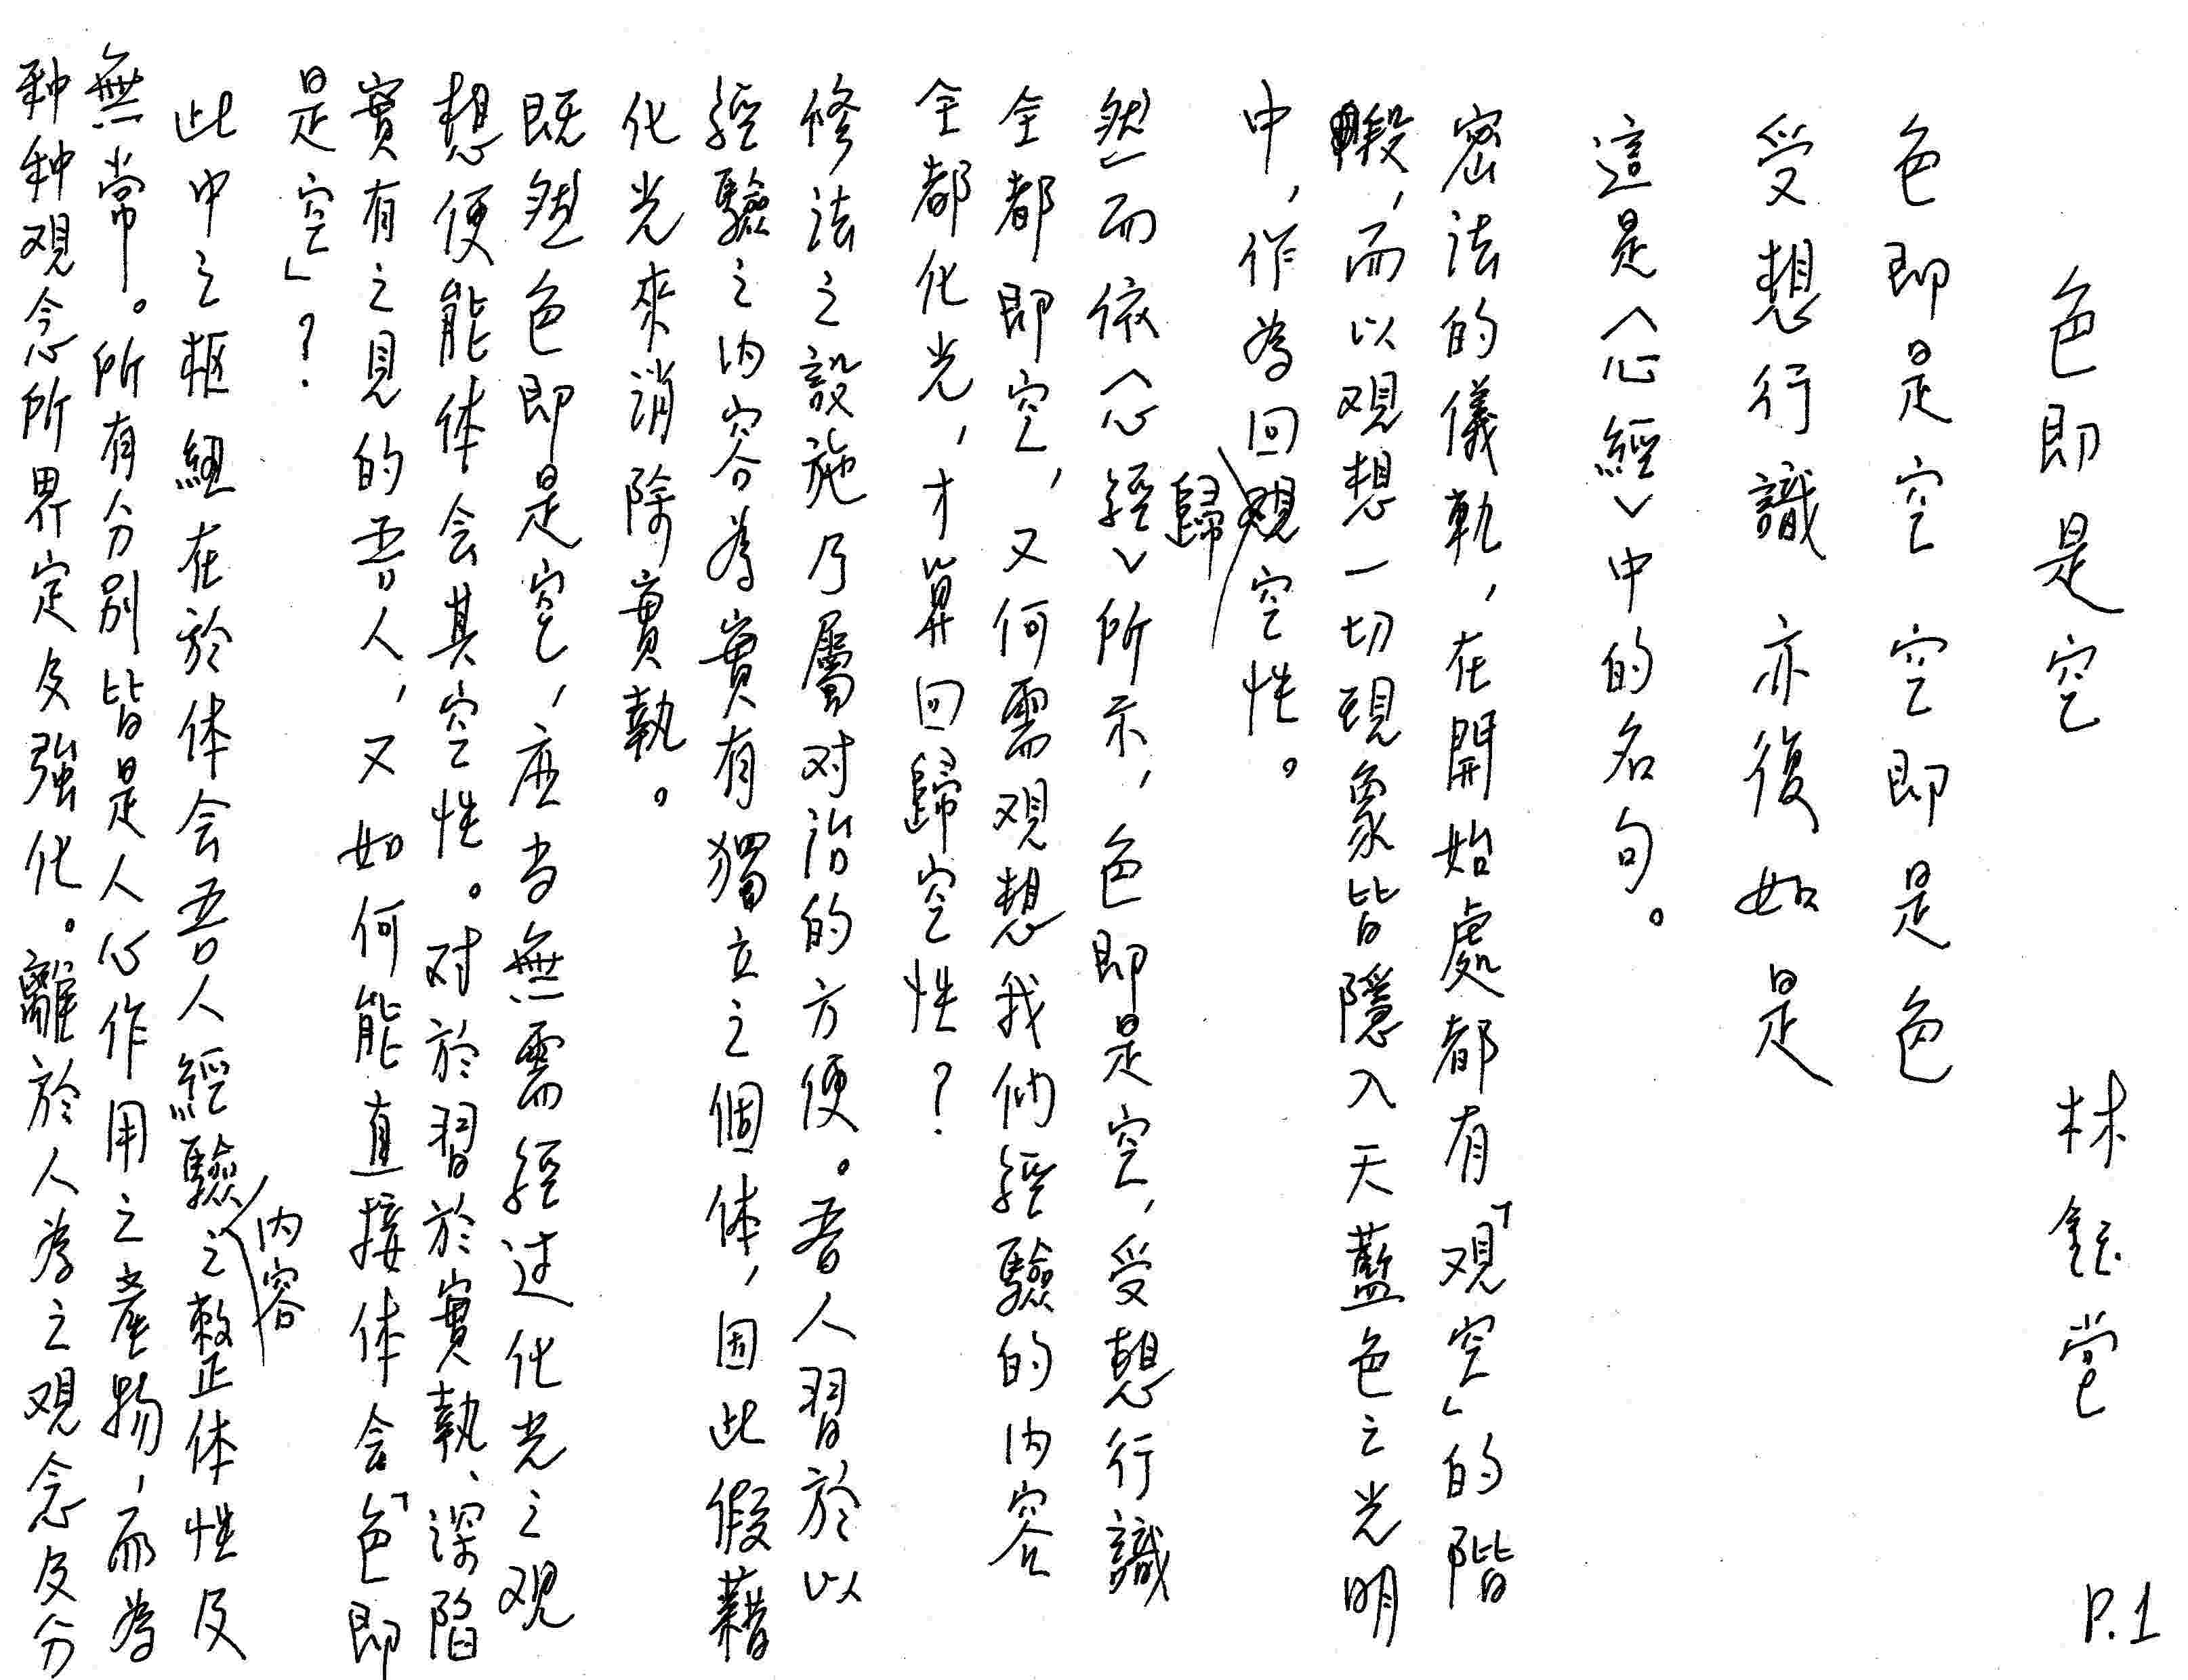 色即是空 林鈺堂 P.1
色即是空 空即是色
受想行識 亦復如是
這是〈心經〉中的名句。
密法的儀軌，在開始處都有「观空」的階
段，而以观想一切現象皆隱入天藍色之光明
中，作為回歸空性。
然而依〈心經〉所示，色即是空，受想行識
全都即空，又何需观想我們經驗的內容
全都化光，才算回歸空性？
修法之設施乃屬对治的方便。吾人習於以
經驗之內容為實有獨立之個体，因此假藉
化光來消除實執。
既然色即是空，应当無需經过化光之观
想便能体会其空性。对於習於實執、深陷
實有之見的吾人，又如何能直接体会「色即
是空」？
此中之樞紐在於体会吾人經驗內容之整体性及
無常。所有分別皆是人心作用之產物，而為
种种观念所界定及強化。離於人為之观念及分